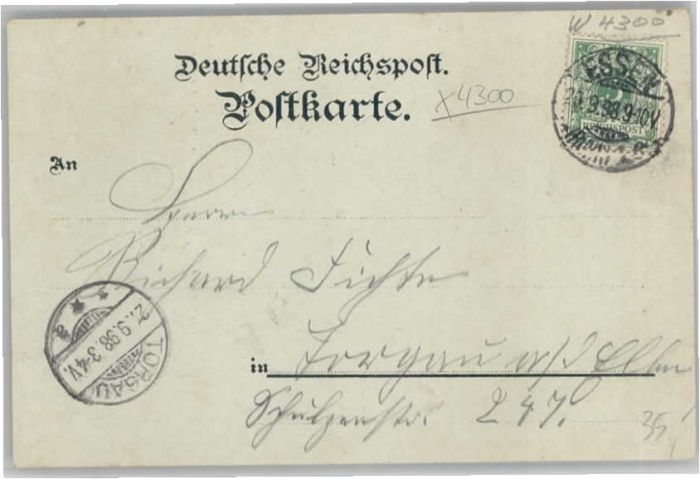 W 4300
Deutsche Reichspost.
Postkarte.
x4300
ESSEN
9.98.9-10V
REICHSPOST
An
Herrn
Richard Fichte
in Torgau a/d Elbe
Schulzenstr. 247.
TORGAU
21.9.98.3-4V.
* a
35